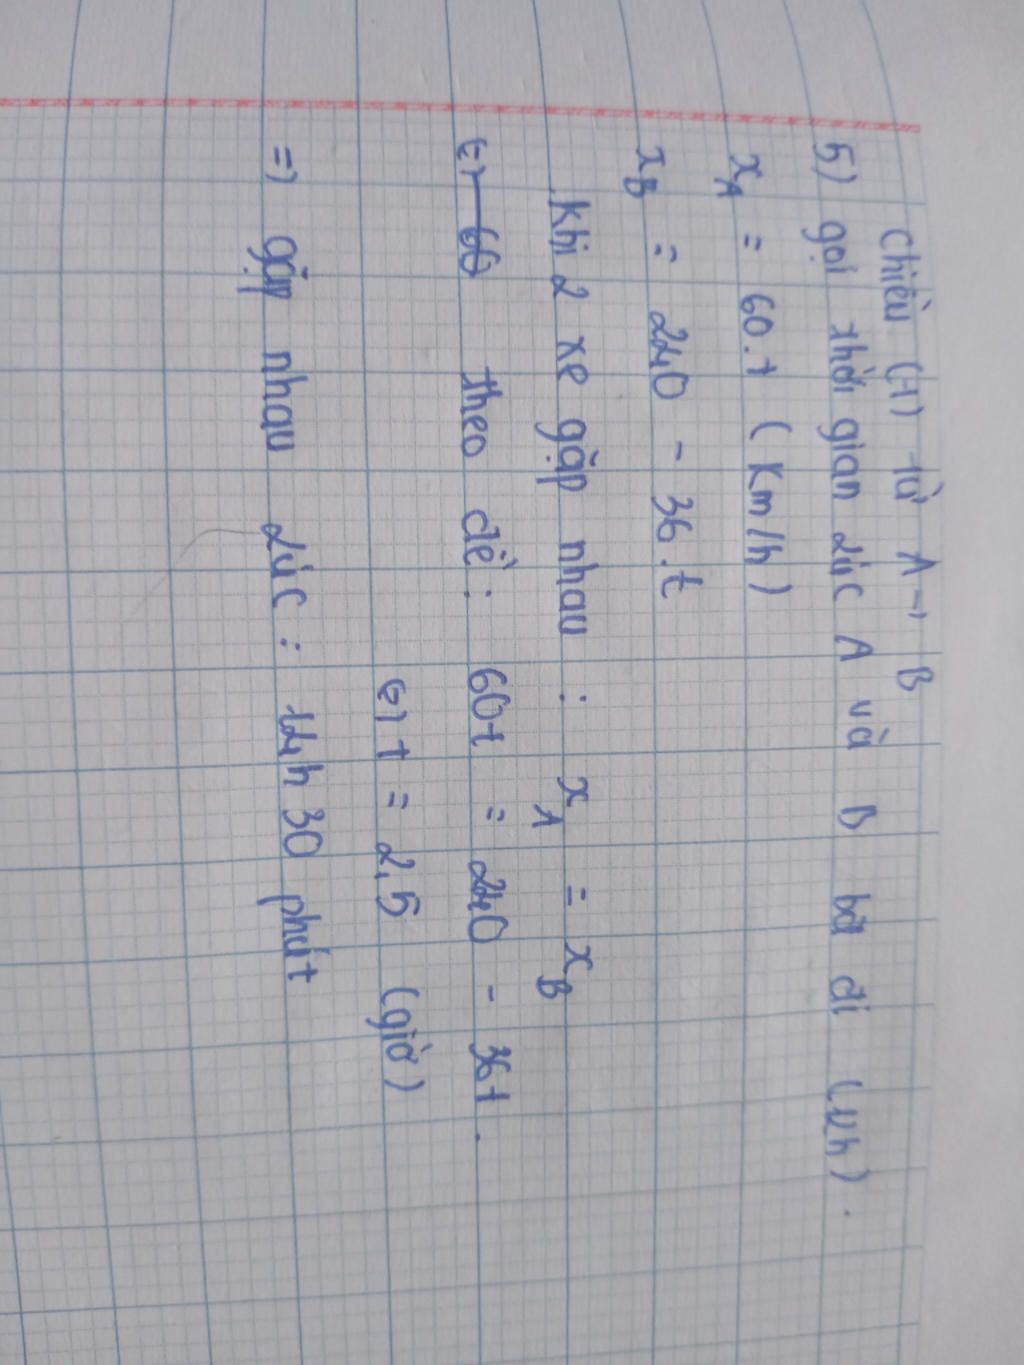 Chiều (+) từ A → B
5) gọi thời gian lúc A và B bắt đi (t,h).
x_A = 60.t (km/h)
x_B = 240 - 36.t
Khi 2 xe gặp nhau : x_A = x_B
theo đề : 60t = 240 - 36t.
(=) t = 2,5 (giờ)
=) gặp nhau lúc : 11h 30 phút